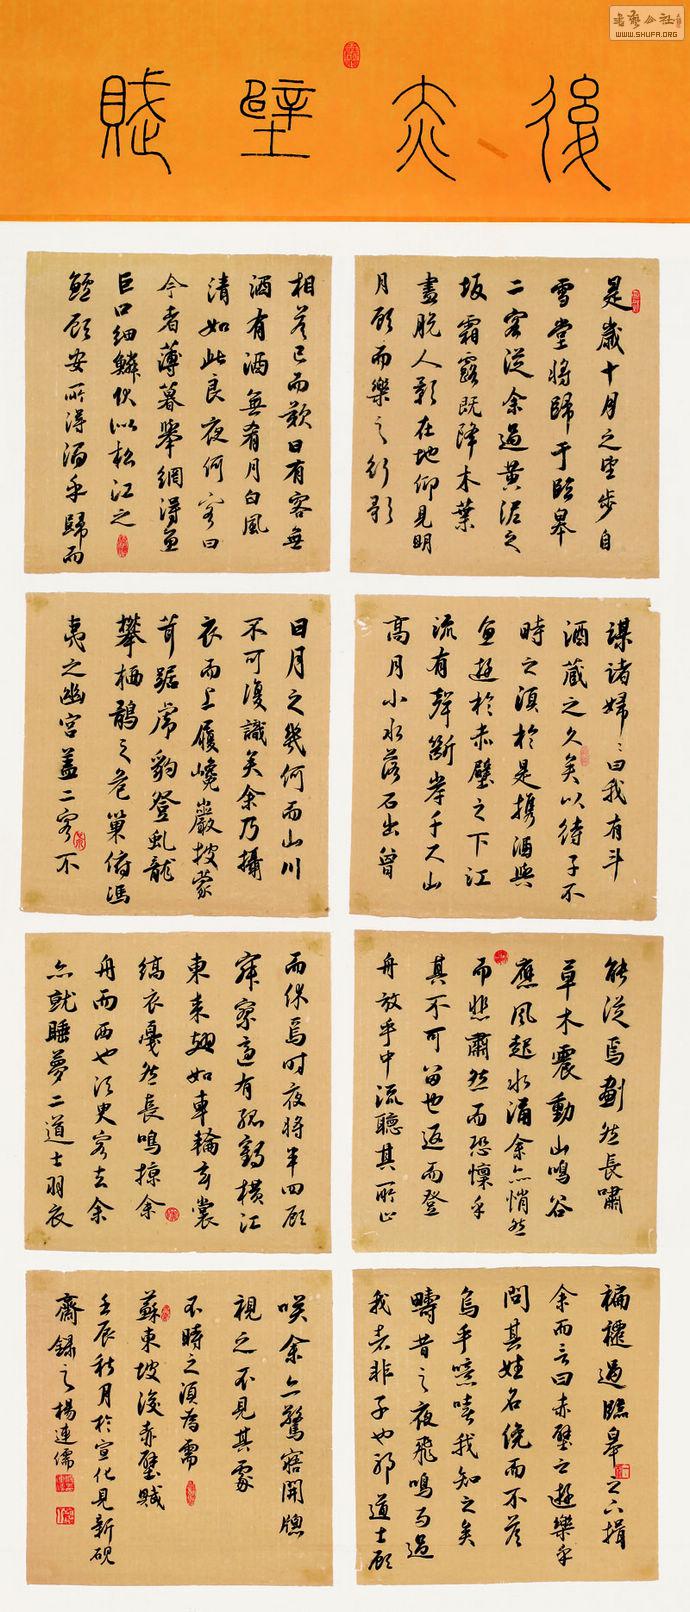 書藝公社
WWW.SHUFA.ORG
後赤壁賦
是歲十月之望步自
雪堂將歸于臨皋
二客從余過黃泥之
坂霜露既降木葉
盡脫人影在地仰見明
月顧而樂之行歌
相答已而歎曰有客無
酒有酒無肴月白風
清如此良夜何客曰
今者薄暮舉網得魚
巨口細鱗狀似松江之
鱸顧安所得酒乎歸而
謀諸婦〻曰我有斗
酒藏之久矣以待子不
時之須於是攜酒與
魚遊於赤壁之下江
流有聲斷岸千尺山
高月小水落石出曾
日月之幾何而山川
不可復識矣余乃攝
衣而上履巉巖披蒙
茸踞虎豹登虬龍
攀栖鶻之危巢俯馮
夷之幽宮蓋二客不
能從焉劃然長嘯
草木震動山鳴谷
應風起水涌余亦悄然
而悲肅然而恐懍乎
其不可留也返而登
舟放乎中流聽其所止
而休焉時夜將半四顧
寂寥適有孤鶴橫江
東來翅如車輪玄裳
縞衣戛然長鳴掠余
舟而西也須臾客去余
亦就睡夢二道士羽衣
褊褼過臨皋之下揖
余而言曰赤壁之遊樂乎
問其姓名俛而不答
烏乎噫嘻我知之矣
疇昔之夜飛鳴而過
我者非子也耶道士顧
咲余亦驚寤開牕
視之不見其處
不時之須爲需
蘇東坡後赤壁賦
壬辰秋月於宣化見新硯
齋錄之楊連儒